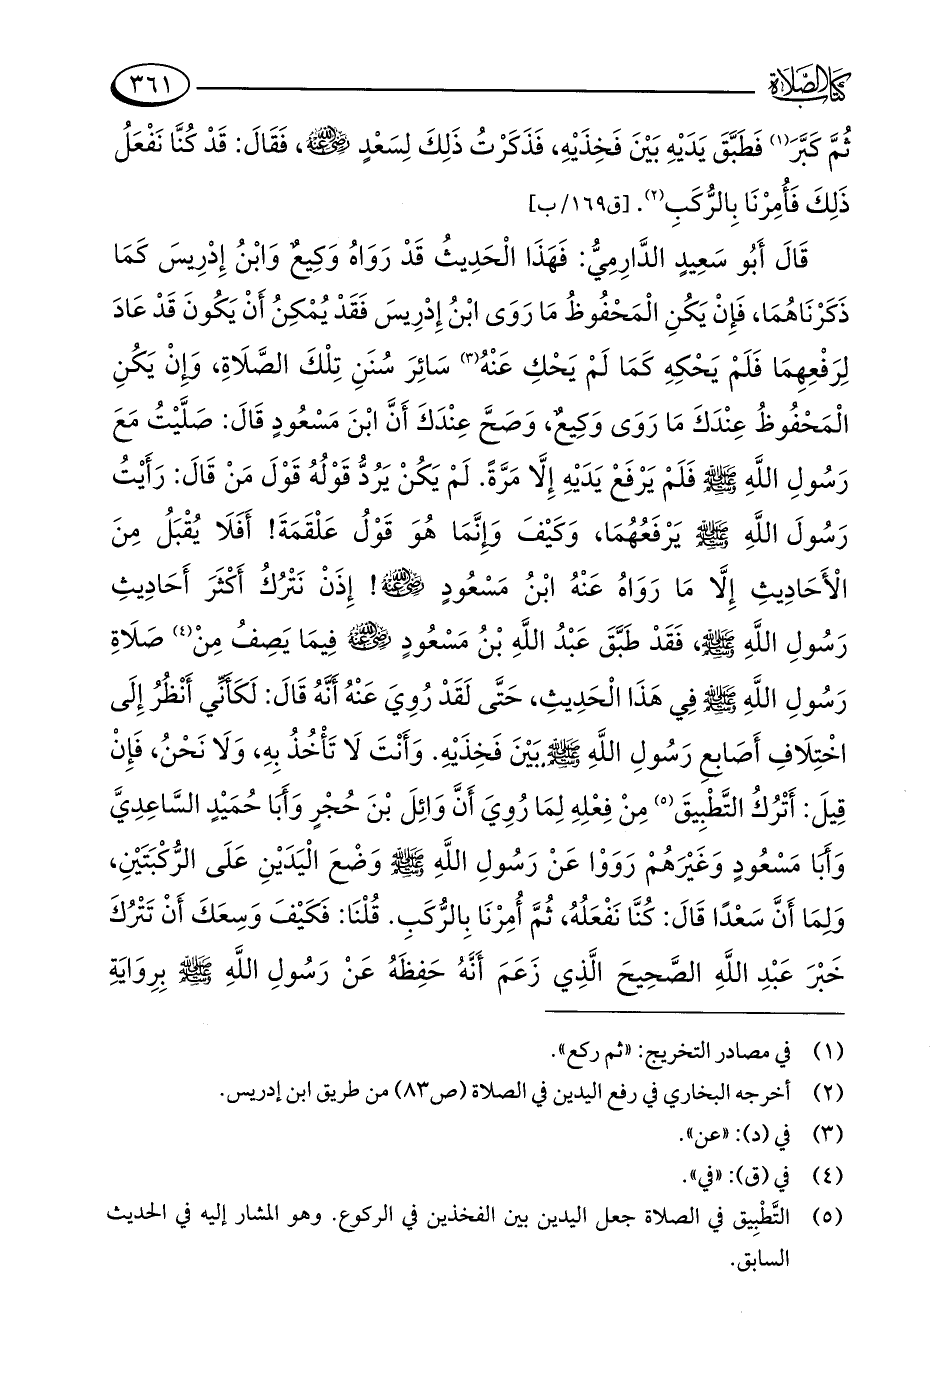 كتاب الصلاة ٣٦١
ثُمَّ كَبَّرَ(١) فَطَبَّقَ يَدَيْهِ بَيْنَ فَخِذَيْهِ، فَذَكَرْتُ ذَلِكَ لِسَعْدٍ رضي الله عنه، فَقَالَ: قَدْ كُنَّا نَفْعَلُ
ذَلِكَ فَأُمِرْنَا بِالرُّكَبِ(٢). [ق١٦٩/ب]
قَالَ أَبُو سَعِيدٍ الدَّارِمِيُّ: فَهَذَا الْحَدِيثُ قَدْ رَوَاهُ وَكِيعٌ وَابْنُ إِدْرِيسَ كَمَا
ذَكَرْنَاهُمَا، فَإِنْ يَكُنِ الْمَحْفُوظُ مَا رَوَى ابْنُ إِدْرِيسَ فَقَدْ يُمْكِنُ أَنْ يَكُونَ قَدْ عَادَ
لِرَفْعِهِمَا فَلَمْ يَحْكِهِ كَمَا لَمْ يَحْكِ عَنْهُ(٣) سَائِرَ سُنَنِ تِلْكَ الصَّلَاةِ، وَإِنْ يَكُنِ
الْمَحْفُوظُ عِنْدَكَ مَا رَوَى وَكِيعٌ، وَصَحَّ عِنْدَكَ أَنَّ ابْنَ مَسْعُودٍ قَالَ: صَلَّيْتُ مَعَ
رَسُولِ اللَّهِ ﷺ فَلَمْ يَرْفَعْ يَدَيْهِ إِلَّا مَرَّةً. لَمْ يَكُنْ يَرُدُّ قَوْلُهُ قَوْلَ مَنْ قَالَ: رَأَيْتُ
رَسُولَ اللَّهِ ﷺ يَرْفَعُهُمَا، وَكَيْفَ وَإِنَّمَا هُوَ قَوْلُ عَلْقَمَةَ! أَفَلَا يُقْبَلُ مِنَ
الْأَحَادِيثِ إِلَّا مَا رَوَاهُ عَنْهُ ابْنُ مَسْعُودٍ رضي الله عنه! إِذَنْ نَتْرُكُ أَكْثَرَ أَحَادِيثِ
رَسُولِ اللَّهِ ﷺ، فَقَدْ طَبَّقَ عَبْدُ اللَّهِ بْنُ مَسْعُودٍ رضي الله عنه فِيمَا يَصِفُ مِنْ(٤) صَلَاةِ
رَسُولِ اللَّهِ ﷺ فِي هَذَا الْحَدِيثِ، حَتَّى لَقَدْ رُوِيَ عَنْهُ أَنَّهُ قَالَ: لَكَأَنِّي أَنْظُرُ إِلَى
اخْتِلَافِ أَصَابِعِ رَسُولِ اللَّهِ ﷺ بَيْنَ فَخِذَيْهِ. وَأَنْتَ لَا تَأْخُذُ بِهِ، وَلَا نَحْنُ، فَإِنْ
قِيلَ: أَتْرُكُ التَّطْبِيقَ(٥) مِنْ فِعْلِهِ لِمَا رُوِيَ أَنَّ وَائِلَ بْنَ حُجْرٍ وَأَبَا حُمَيْدٍ السَّاعِدِيَّ
وَأَبَا مَسْعُودٍ وَغَيْرَهُمْ رَوَوْا عَنْ رَسُولِ اللَّهِ ﷺ وَضْعَ الْيَدَيْنِ عَلَى الرُّكْبَتَيْنِ،
وَلِمَا أَنَّ سَعْدًا قَالَ: كُنَّا نَفْعَلُهُ، ثُمَّ أُمِرْنَا بِالرُّكَبِ. قُلْنَا: فَكَيْفَ وَسِعَكَ أَنْ تَتْرُكَ
خَبْرَ عَبْدِ اللَّهِ الصَّحِيحَ الَّذِي زَعَمَ أَنَّهُ حَفِظَهُ عَنْ رَسُولِ اللَّهِ ﷺ بِرِوَايَةِ
(١) في مصادر التخريج: «ثم ركع».
(٢) أخرجه البخاري في رفع اليدين في الصلاة (ص٨٣) من طريق ابن إدريس.
(٣) في (د): «عن».
(٤) في (ق): «في».
(٥) التَّطْبِيق في الصلاة جعل اليدين بين الفخذين في الركوع. وهو المشار إليه في الحديث
السابق.